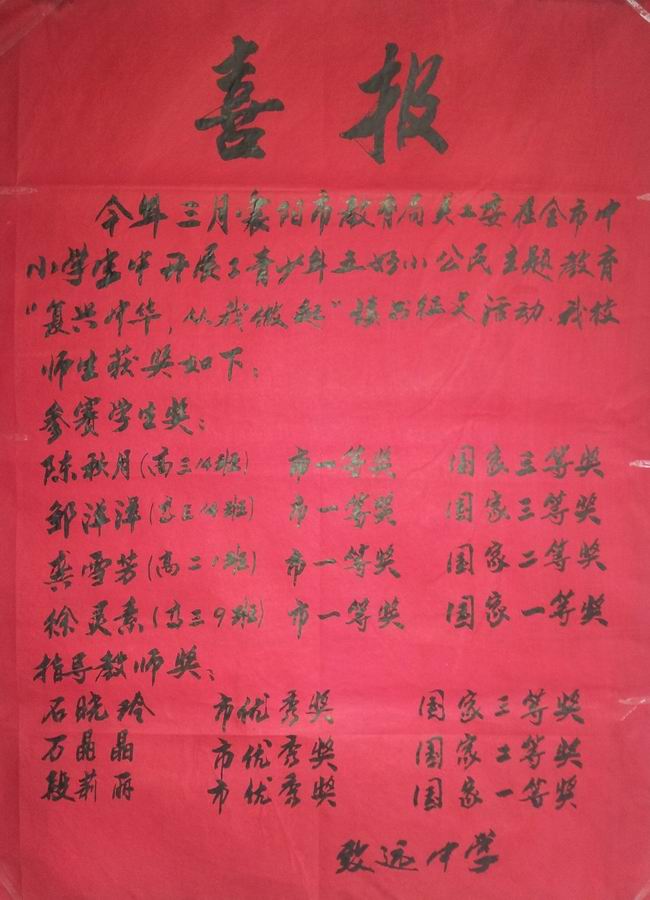 喜报
今年三月襄阳市教育局关工委在全市中
小学生中开展了青少年五好小公民主题教育
“复兴中华，从我做起”读书征文活动.我校
师生获奖如下：
参赛学生奖：
陈秋月(高三14班) 市一等奖 国家三等奖
邹洋洋(高三14班) 市一等奖 国家三等奖
龚雪芳(高二1班) 市一等奖 国家二等奖
徐灵素(高三9班) 市一等奖 国家一等奖
指导教师奖：
石晓玲 市优秀奖 国家三等奖
万晶晶 市优秀奖 国家二等奖
段莉丽 市优秀奖 国家一等奖
致远中学